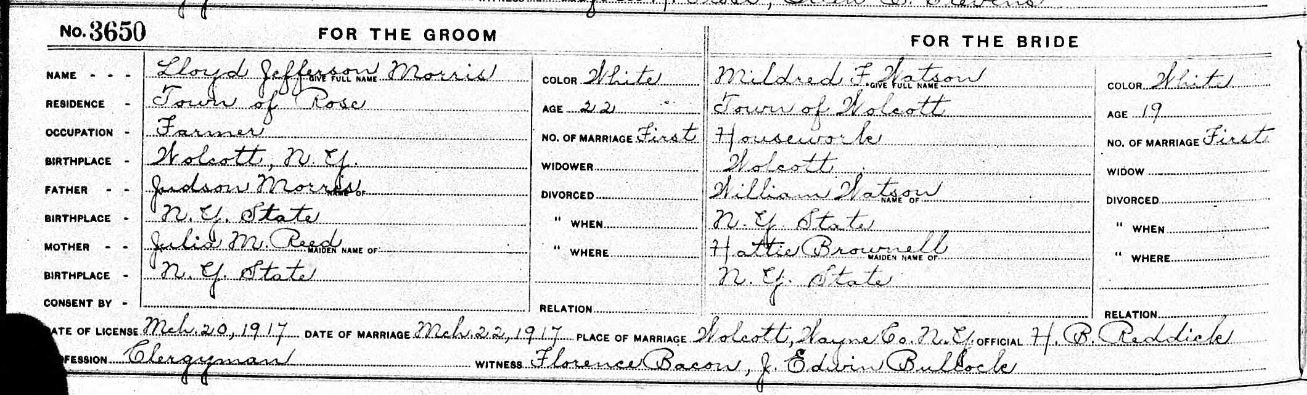 No. 3650 FOR THE GROOM FOR THE BRIDE
NAME - - - Lloyd Jefferson Morris GIVE FULL NAME COLOR White Mildred F. Watson GIVE FULL NAME COLOR White
RESIDENCE - Town of Rose AGE 22 Town of Wolcott AGE 19
OCCUPATION - Farmer NO. OF MARRIAGE First Housework NO. OF MARRIAGE First
BIRTHPLACE - Wolcott, N.Y. WIDOWER Wolcott WIDOW
FATHER - - Judson Morris NAME OF DIVORCED William Watson NAME OF DIVORCED
BIRTHPLACE - N.Y. State " WHEN N.Y. State " WHEN
MOTHER - - Julia M. Reed MAIDEN NAME OF " WHERE Hattie Brownell MAIDEN NAME OF " WHERE
BIRTHPLACE - N.Y. State N.Y. State
CONSENT BY - RELATION RELATION
DATE OF LICENSE Mch. 20, 1917 DATE OF MARRIAGE Mch. 22, 1917 PLACE OF MARRIAGE Wolcott, Wayne Co. N.Y. OFFICIAL H. B. Reddick
OFESSION Clergyman WITNESS Florence Bacon, J. Edwin Bullock